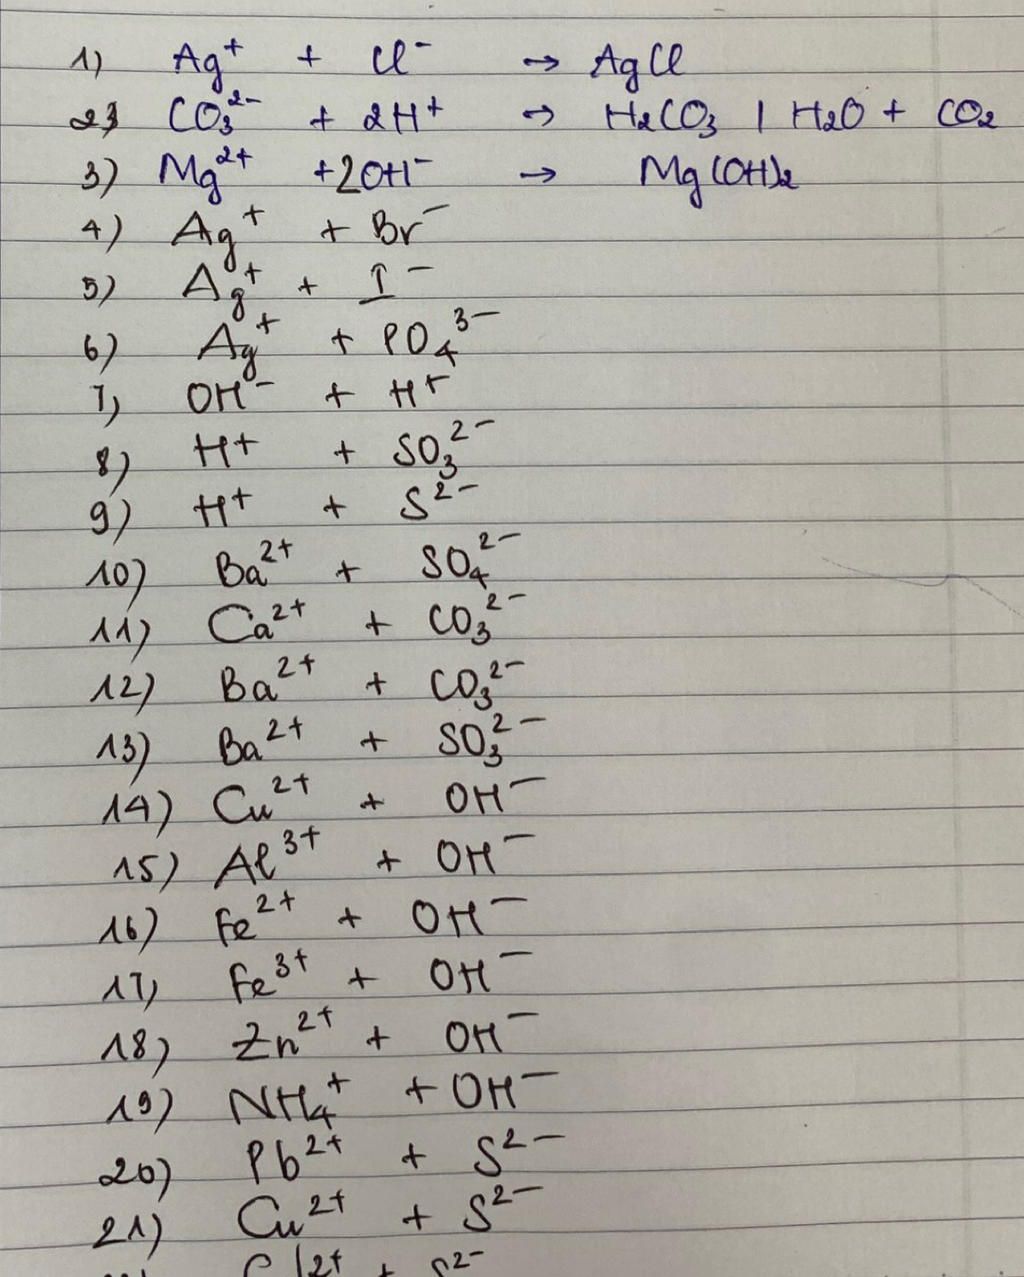 1) Ag⁺ + Cl⁻ → AgCl
2) CO₃²⁻ + 2H⁺ → H₂CO₃ | H₂O + CO₂
3) Mg²⁺ + 2OH⁻ → Mg(OH)₂
4) Ag⁺ + Br⁻
5) Ag⁺ + I⁻
6) Ag⁺ + PO₄³⁻
7) OH⁻ + H⁺
8) H⁺ + SO₃²⁻
9) H⁺ + S²⁻
10) Ba²⁺ + SO₄²⁻
11) Ca²⁺ + CO₃²⁻
12) Ba²⁺ + CO₃²⁻
13) Ba²⁺ + SO₃²⁻
14) Cu²⁺ + OH⁻
15) Al³⁺ + OH⁻
16) Fe²⁺ + OH⁻
17) Fe³⁺ + OH⁻
18) Zn²⁺ + OH⁻
19) NH₄⁺ + OH⁻
20) Pb²⁺ + S²⁻
21) Cu²⁺ + S²⁻
+ S²⁻